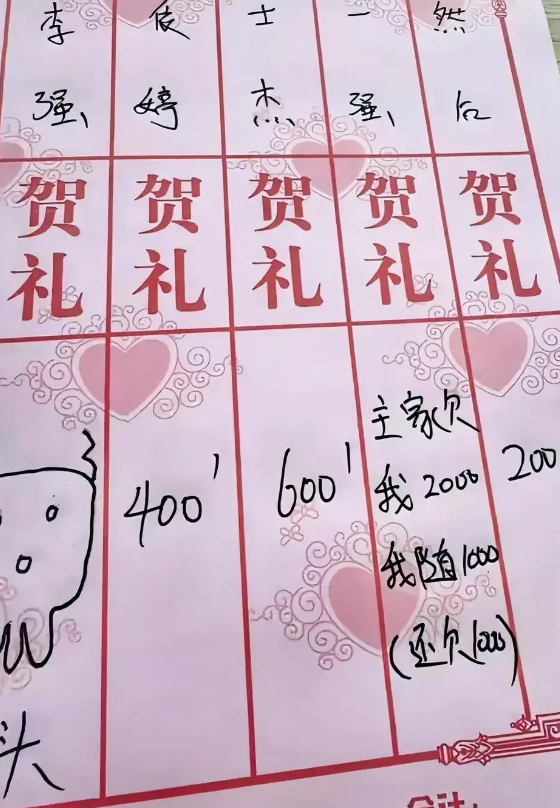 李 俊 士 一 然
强 婷 杰 强 后
贺 贺 贺 贺 贺
礼 礼 礼 礼 礼
主家欠
400 600 我2000 200
我随1000
(还欠1000)
头
合计